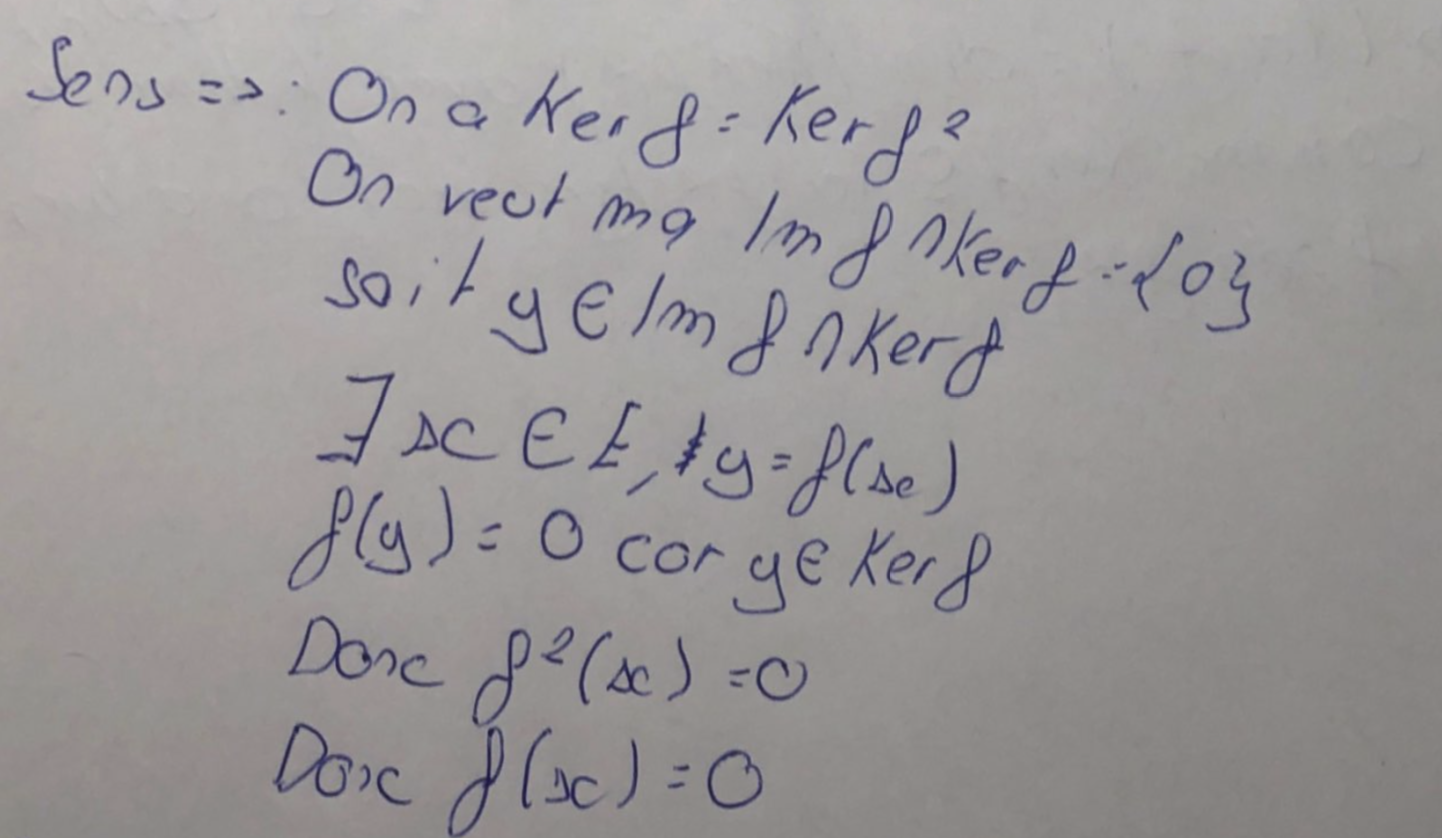 Sens =>: On a Ker f = Ker f²
On veut mq Im f ∩ Ker f = {0}
soit y ∈ Im f ∩ Ker f
∃ x ∈ E, y = f(x)
f(y) = 0 car y ∈ Ker f
Donc f²(x) = 0
Donc f(x) = 0